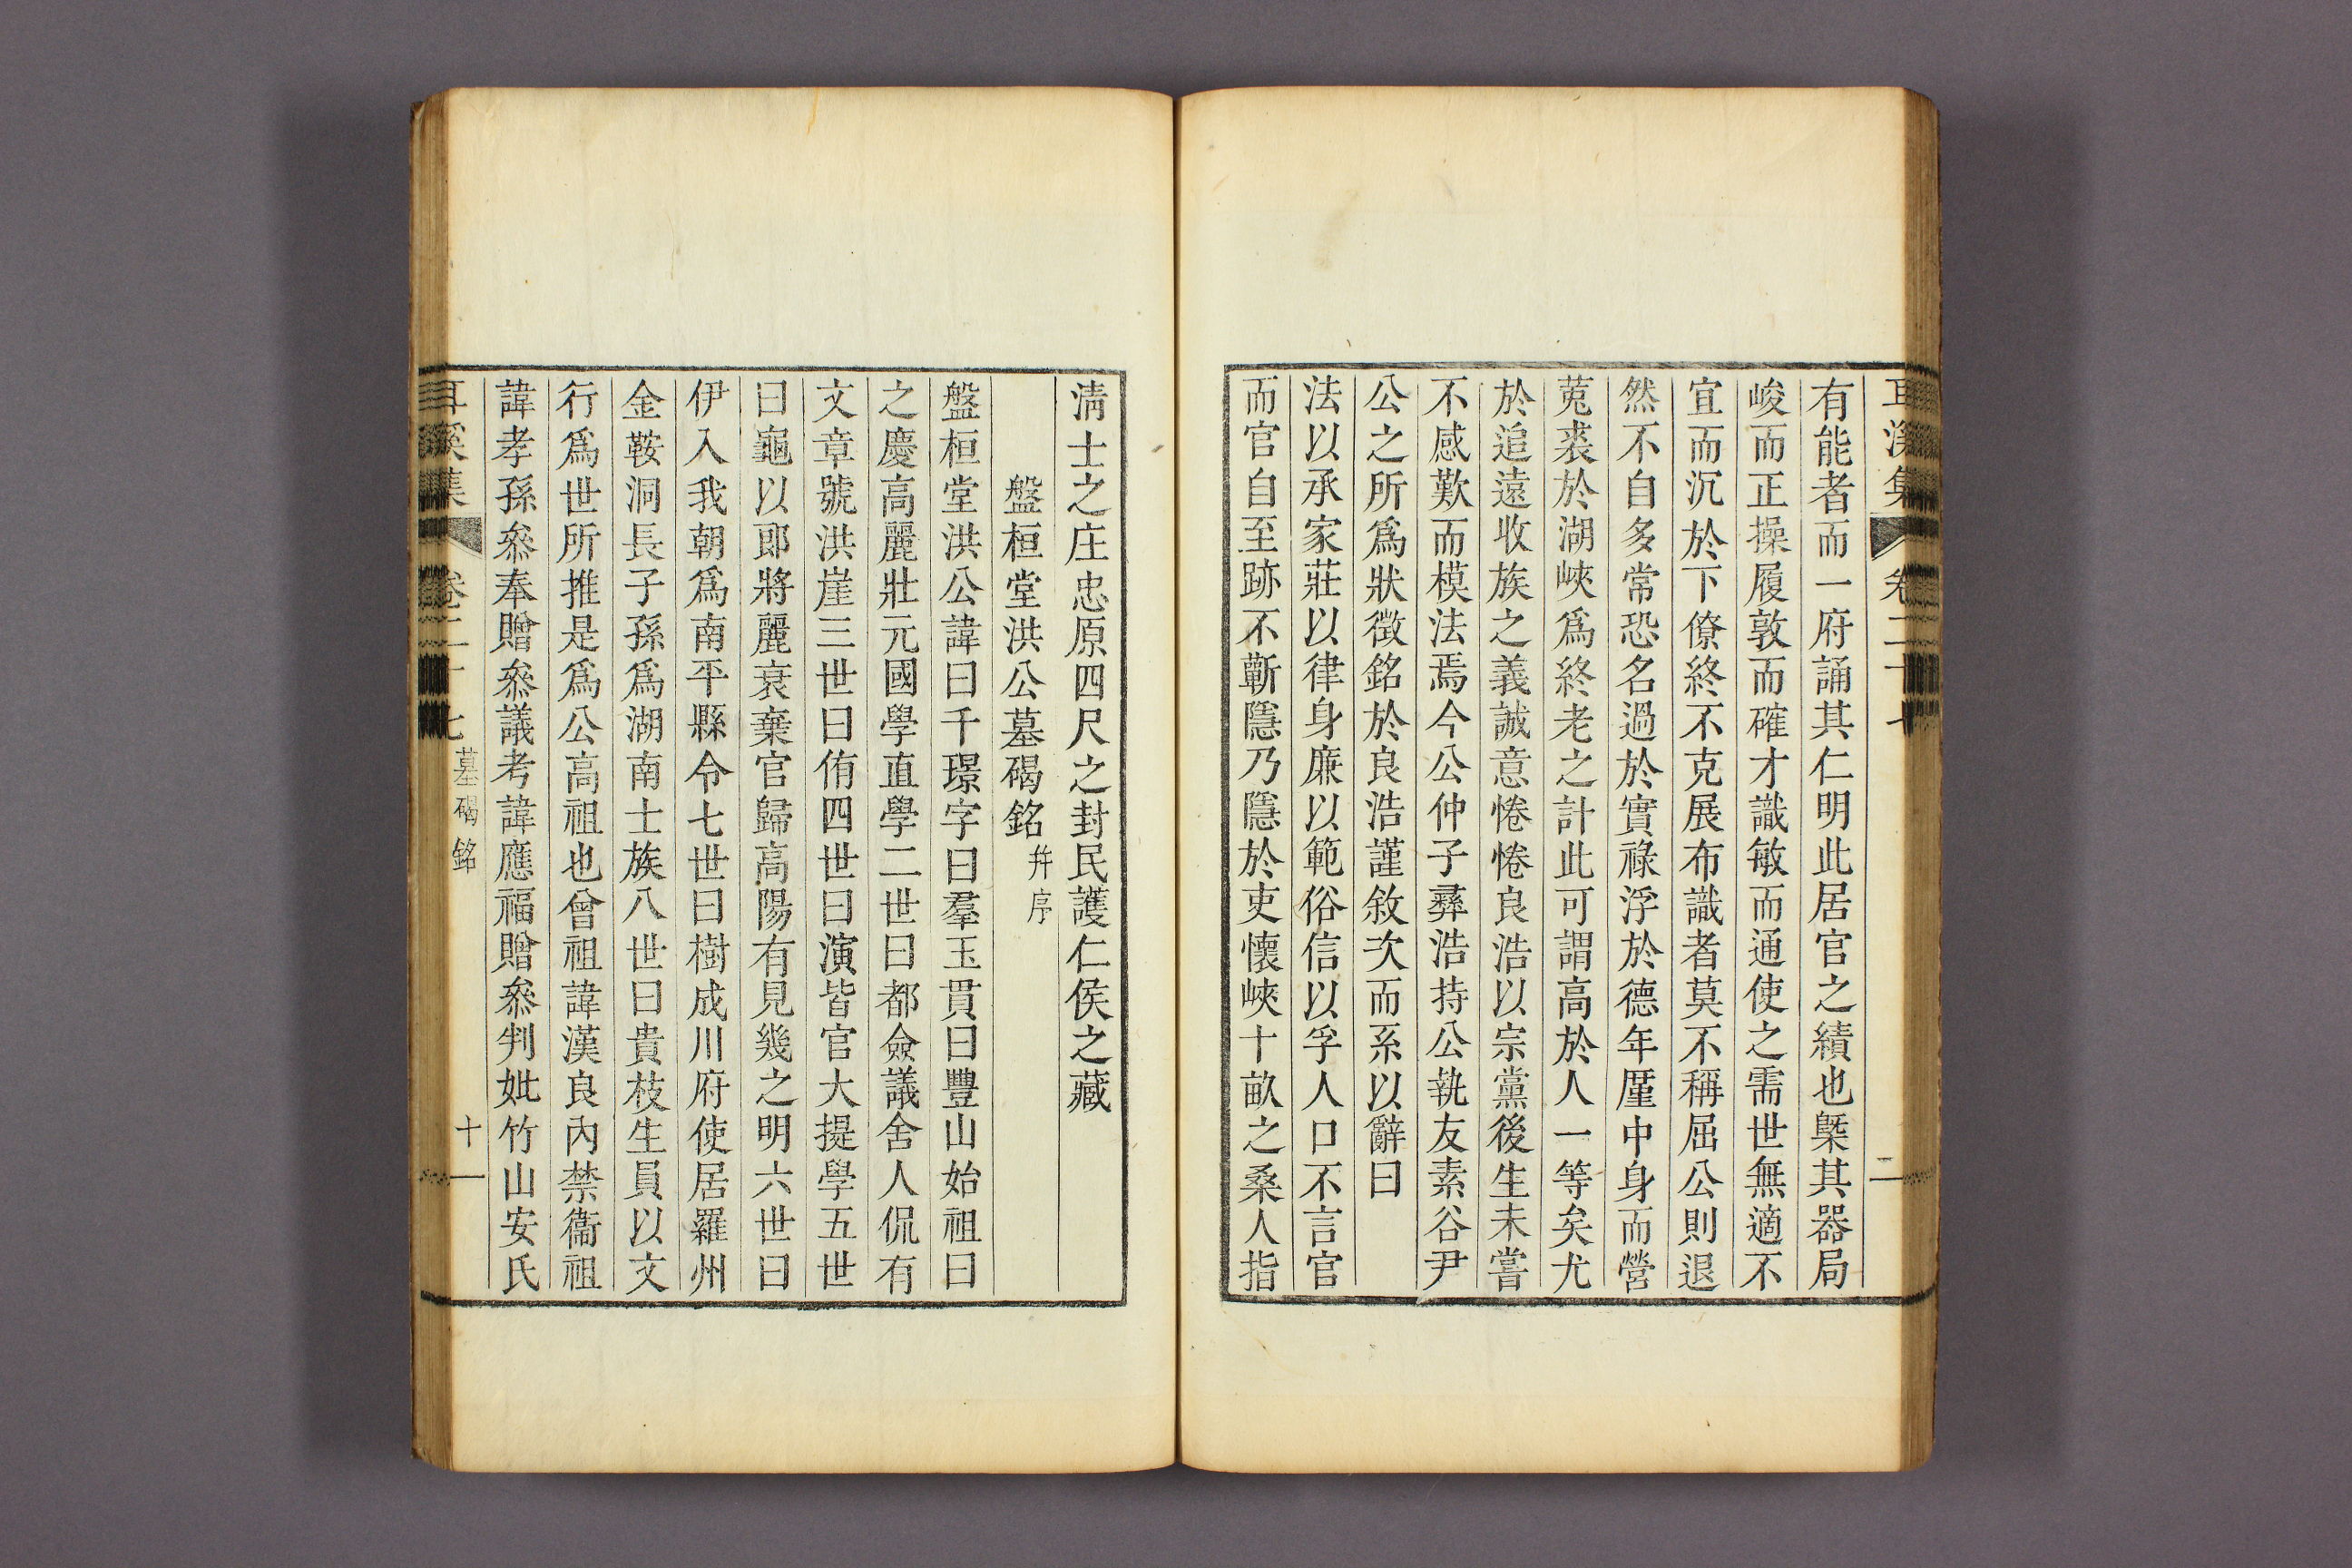 耳溪集 卷二十七
有能者而一府誦其仁明此居官之績也槩其器局
峻而正操履敦而確才識敏而通使之需世無適不
宜而沉於下僚終不克展布識者莫不稱屈公則退
然不自多常恐名過於實祿浮於德年厪中身而營
菟裘於湖峽爲終老之計此可謂高於人一等矣尤
於追遠收族之義誠意惓惓良浩以宗黨後生未嘗
不感歎而模法焉今公仲子彛浩持公執友素谷尹
公之所爲狀徵銘於良浩謹敘次而系以辭曰
法以承家莊以律身廉以範俗信以孚人口不言官
而官自至跡不蘄隱乃隱於吏懷峽十畝之桑人指
淸士之庄忠原四尺之封民護仁侯之藏
盤桓堂洪公墓碣銘 幷序
盤桓堂洪公諱曰千璟字曰羣玉貫曰豐山始祖曰
之慶高麗壯元國學直學二世曰都僉議舍人侃有
文章號洪崖三世曰侑四世曰演皆官大提學五世
曰龜以郎將麗衰棄官歸高陽有見幾之明六世曰
伊入我朝爲南平縣令七世曰樹成川府使居羅州
金鞍洞長子孫爲湖南士族八世曰貴枝生員以文
行爲世所推是爲公高祖也曾祖諱漢良內禁衞祖
諱孝孫叅奉贈叅議考諱應福贈叅判妣竹山安氏
耳溪集 卷二十七 墓碣銘 十一